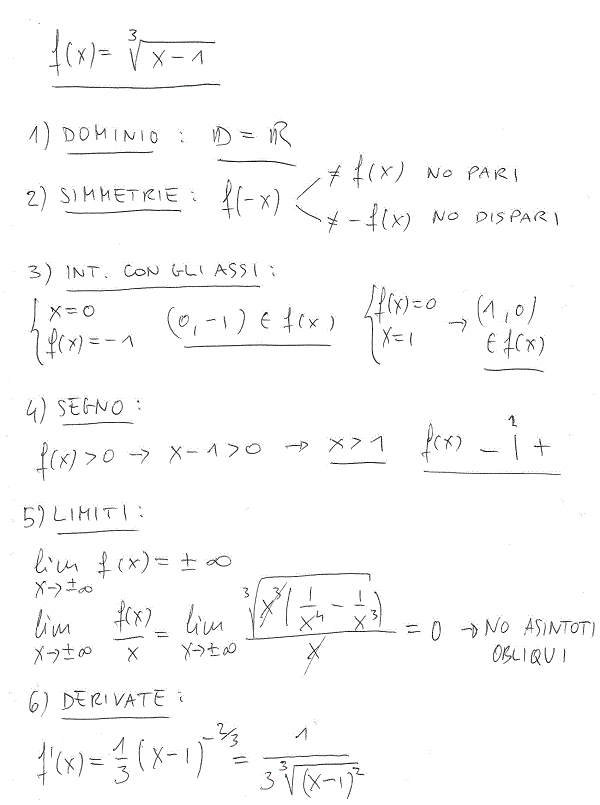 f(x) = ∛(x-1)
1) DOMINIO : D = ℝ
2) SIMMETRIE : f(-x) ≠ f(x) NO PARI
≠ -f(x) NO DISPARI
3) INT. CON GLI ASSI :
{ x=0 f(x)=-1 (0,-1) ∈ f(x) { f(x)=0 x=1 → (1,0) ∈ f(x)
4) SEGNO :
f(x)>0 → x-1>0 → x>1 f(x) - 1| +
5) LIMITI :
lim x→±∞ f(x) = ±∞
lim x→±∞ f(x)/x = lim x→±∞ ∛(x³(1/x⁴ - 1/x³))/x = 0 → NO ASINTOTI OBLIQUI
6) DERIVATE :
f'(x) = 1/3 (x-1)^(-2/3) = 1/(3∛((x-1)²))